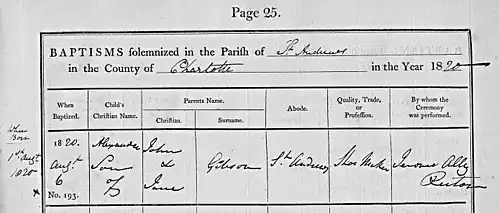 Page 25.
BAPTISMS solemnized in the Parish of St Andrews
in the County of Charlotte in the Year 1820
When Baptized. Child's Christian Name. Parents Name. Abode. Quality, Trade, or Profession. By whom the Ceremony was performed.
Christian. Surname.
When
Born
1st Augt
1820
1820. Alexander John
Augt Son & Gibson St Andrews Shoe Maker Jerome Alley
6 of Jane Rector
No. 193.